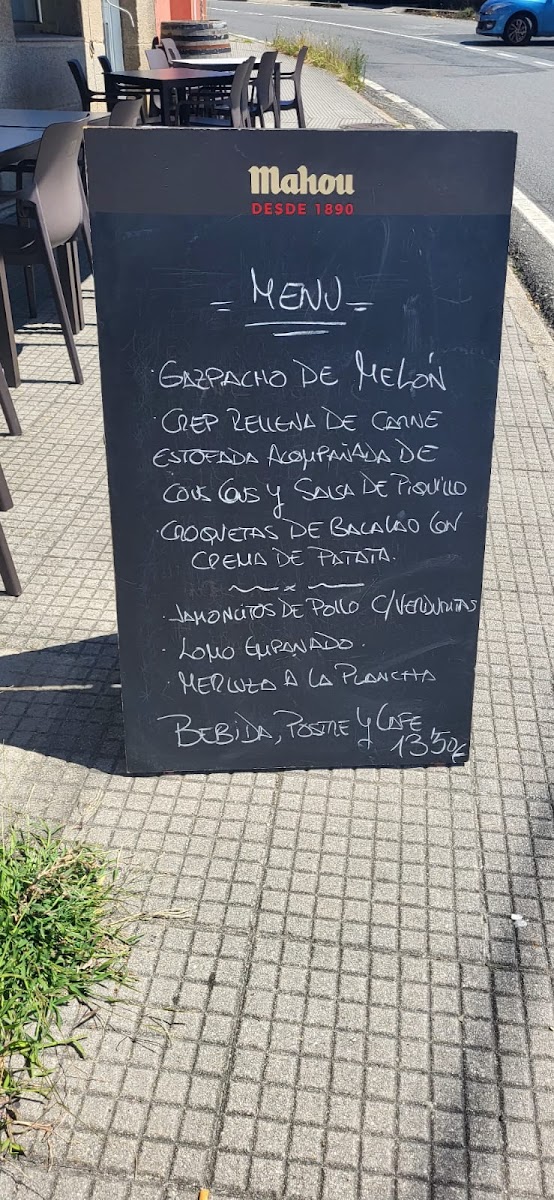 Mahou
DESDE 1890
- MENU -
· GAZPACHO DE MELÓN
· CREP RELLENA DE CARNE
ESTOFADA ACOMPAÑADA DE
COUS COUS Y SALSA DE PIQUILLO
· CROQUETAS DE BACALAO CON
CREMA DE PATATA.
~ x ~
· JAMONCITOS DE POLLO C/VERDURITAS
· LOMO EMPANADO.
· MERLUZA A LA PLANCHA
BEBIDA, POSTRE Y CAFE
13'50€